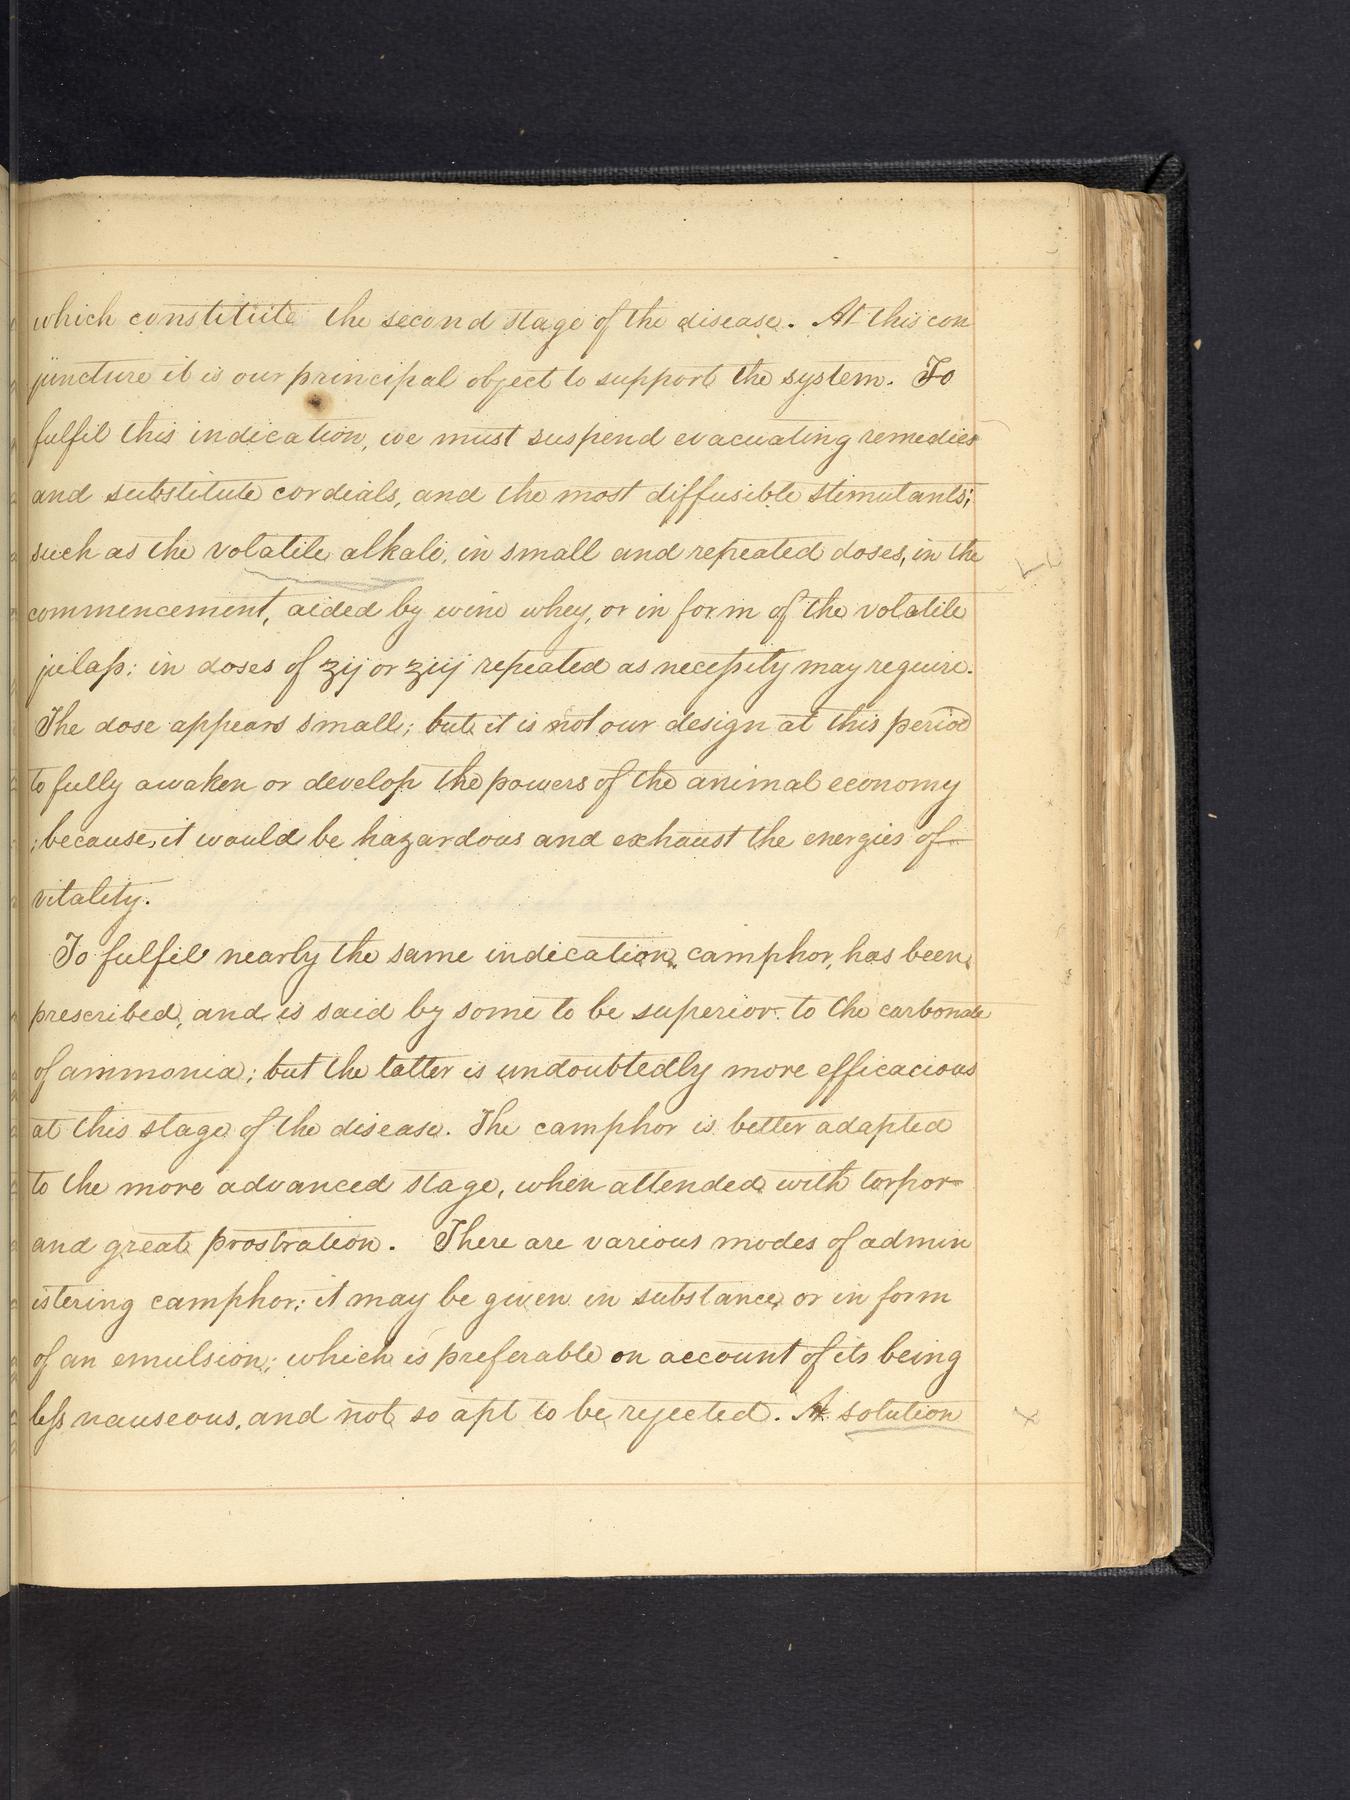 which constitute the second stage of the disease. At this con
juncture it is our principal object to support the system. To
fulfil this indication, we must suspend evacuating remedies
and substitute cordials, and the most diffusible stimulants;
such as the volatile alkali, in small and repeated doses, in the
commencement, aided by wine whey, or in form of the volatile
julap: in doses of ʒij or ʒiij repeated as necessity may require.
The dose appears small; but it is not our design at this period
to fully awaken or develop the powers of the animal economy
; because, it would be hazardous and exhaust the energies of
vitality.
To fulfil nearly the same indication, camphor, has been,
prescribed, and is said by some to be superior to the carbonate
of ammonia; but the latter is undoubtedly more efficacious
at this stage of the disease. The camphor is better adapted
to the more advanced stage, when attended with torpor
and great prostration. There are various modes of admin
istering camphor; it may be given in substance, or in form
of an emulsion; which is preferable on account of its being
less nauseous, and not so apt to be rejected. A solution